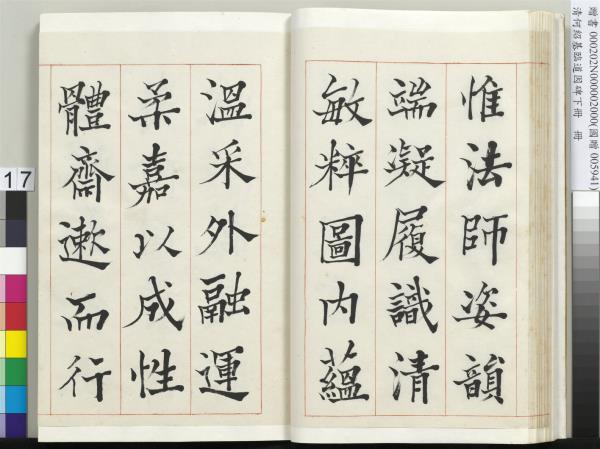 惟法師姿韻
端凝履識清
敏粹圖內蘊
溫采外融運
柔嘉以成性
體齋遬而行
贈書 000202N000002000(國贈 005941)
清何紹基臨道因碑下冊 冊
17